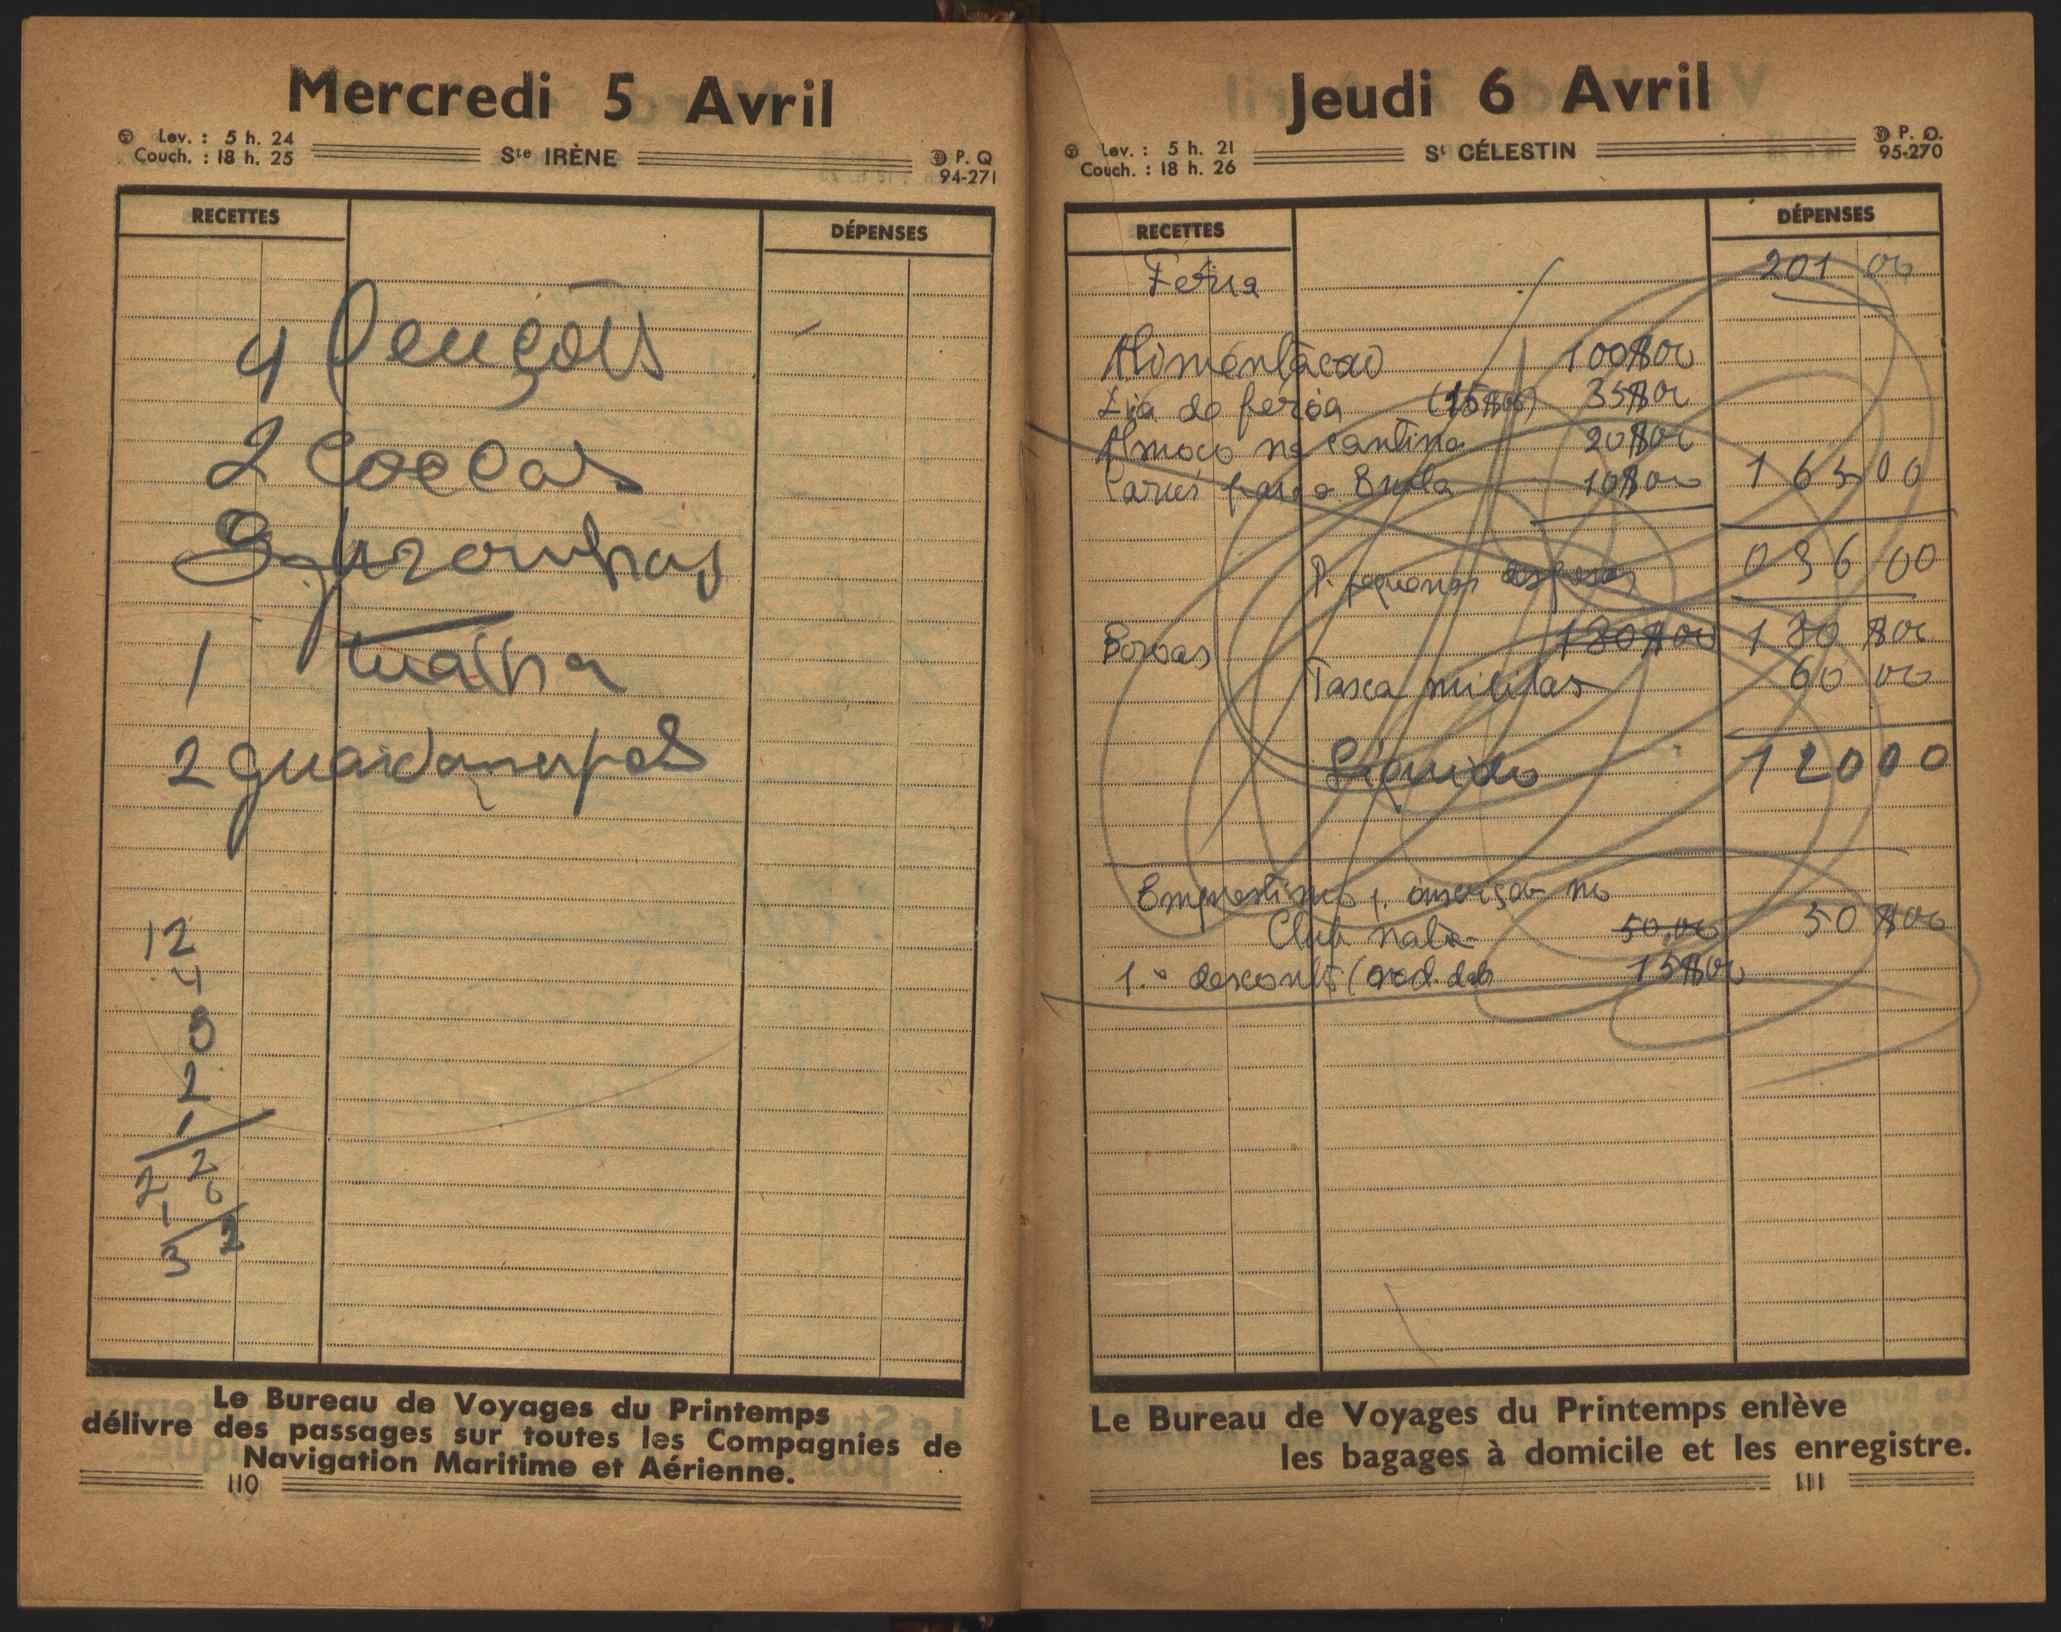 Mercredi 5 Avril
Lev. : 5 h. 24
Couch. : 18 h. 25
Ste IRÈNE
P. Q
94-271
RECETTES
DÉPENSES
4 lençóis
2
8 fronhas
1 tualha
2 guardanapos
12
4
8
2
1
2
26
1
32
Le Bureau de Voyages du Printemps
délivre des passages sur toutes les Compagnies de
Navigation Maritime et Aérienne.
110
Jeudi 6 Avril
Lev. : 5 h. 21
Couch. : 18 h. 26
St CÉLESTIN
P. Q.
95-270
RECETTES
DÉPENSES
Féria 201 00
Alimentacao 100$00
Dia de feria (15$00) 35$00
Almoco na cantina 20$00
para o 10$00 165 00
P. pequenas despesas 036 00
180$00 180 $00
Tasca militar 60 00
Liquido 12000
Emprestimo p. inscriçao no
Club 50,00 50 $00
1.º desconto 15$00
Le Bureau de Voyages du Printemps enlève
les bagages à domicile et les enregistre.
111